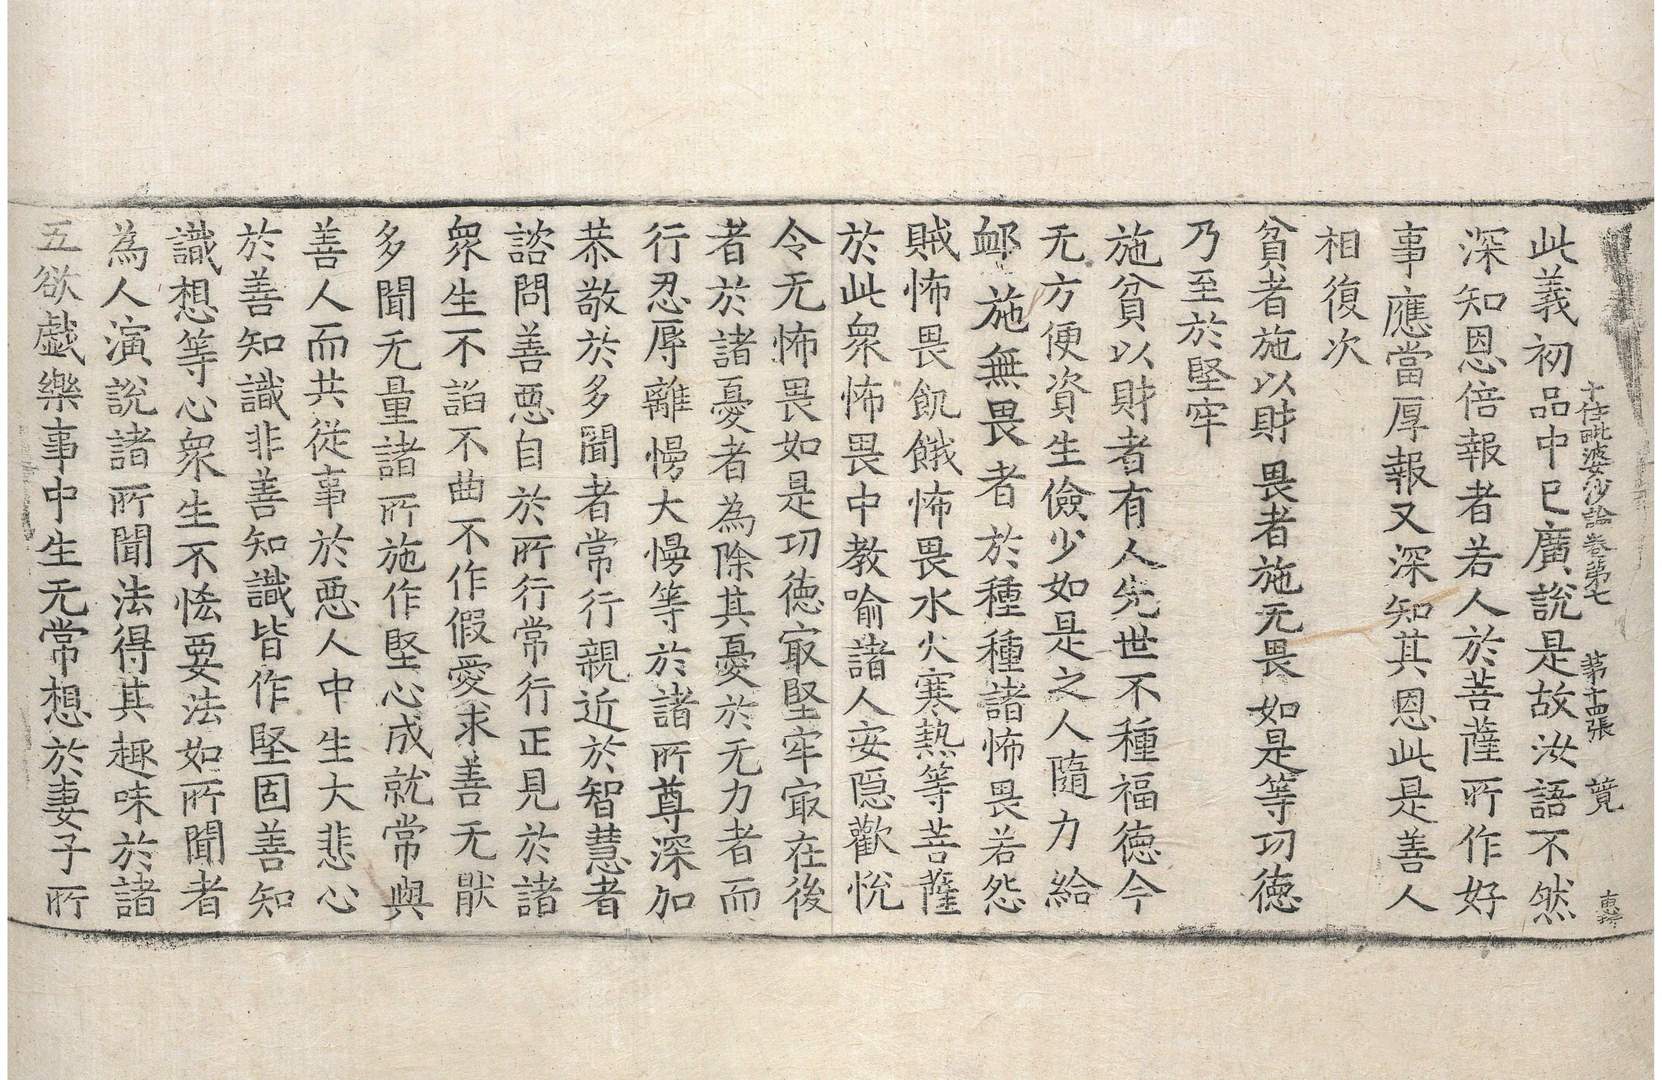 十住毗婆沙論卷第七　第十四張　竟
此義初品中已廣說是故汝語不然
深知恩倍報者若人於菩薩所作好
事應當厚報又深知其恩此是善人
相復次
貧者施以財　畏者施无畏　如是等功徳
乃至於堅牢
施貧以財者有人先世不種福徳今
无方便資生儉少如是之人隨力給
卹施無畏者於種種諸怖畏若怨
賊怖畏飢餓怖畏水火寒熱等菩薩
於此衆怖畏中教喻諸人安隱歡悅
令无怖畏如是功徳冣堅牢冣在後
者於諸憂者為除其憂於无力者而
行忍辱離慢大慢等於諸所尊深加
恭敬於多聞者常行親近於智慧者
諮問善惡自於所行常行正見於諸
衆生不諂不曲不作假愛求善无猒
多聞无量諸所施作堅心成就常與
善人而共從事於惡人中生大悲心
於善知識非善知識皆作堅固善知
識想等心衆生不恡要法如所聞者
為人演說諸所聞法得其趣味於諸
五欲戱樂事中生无常想於妻子所